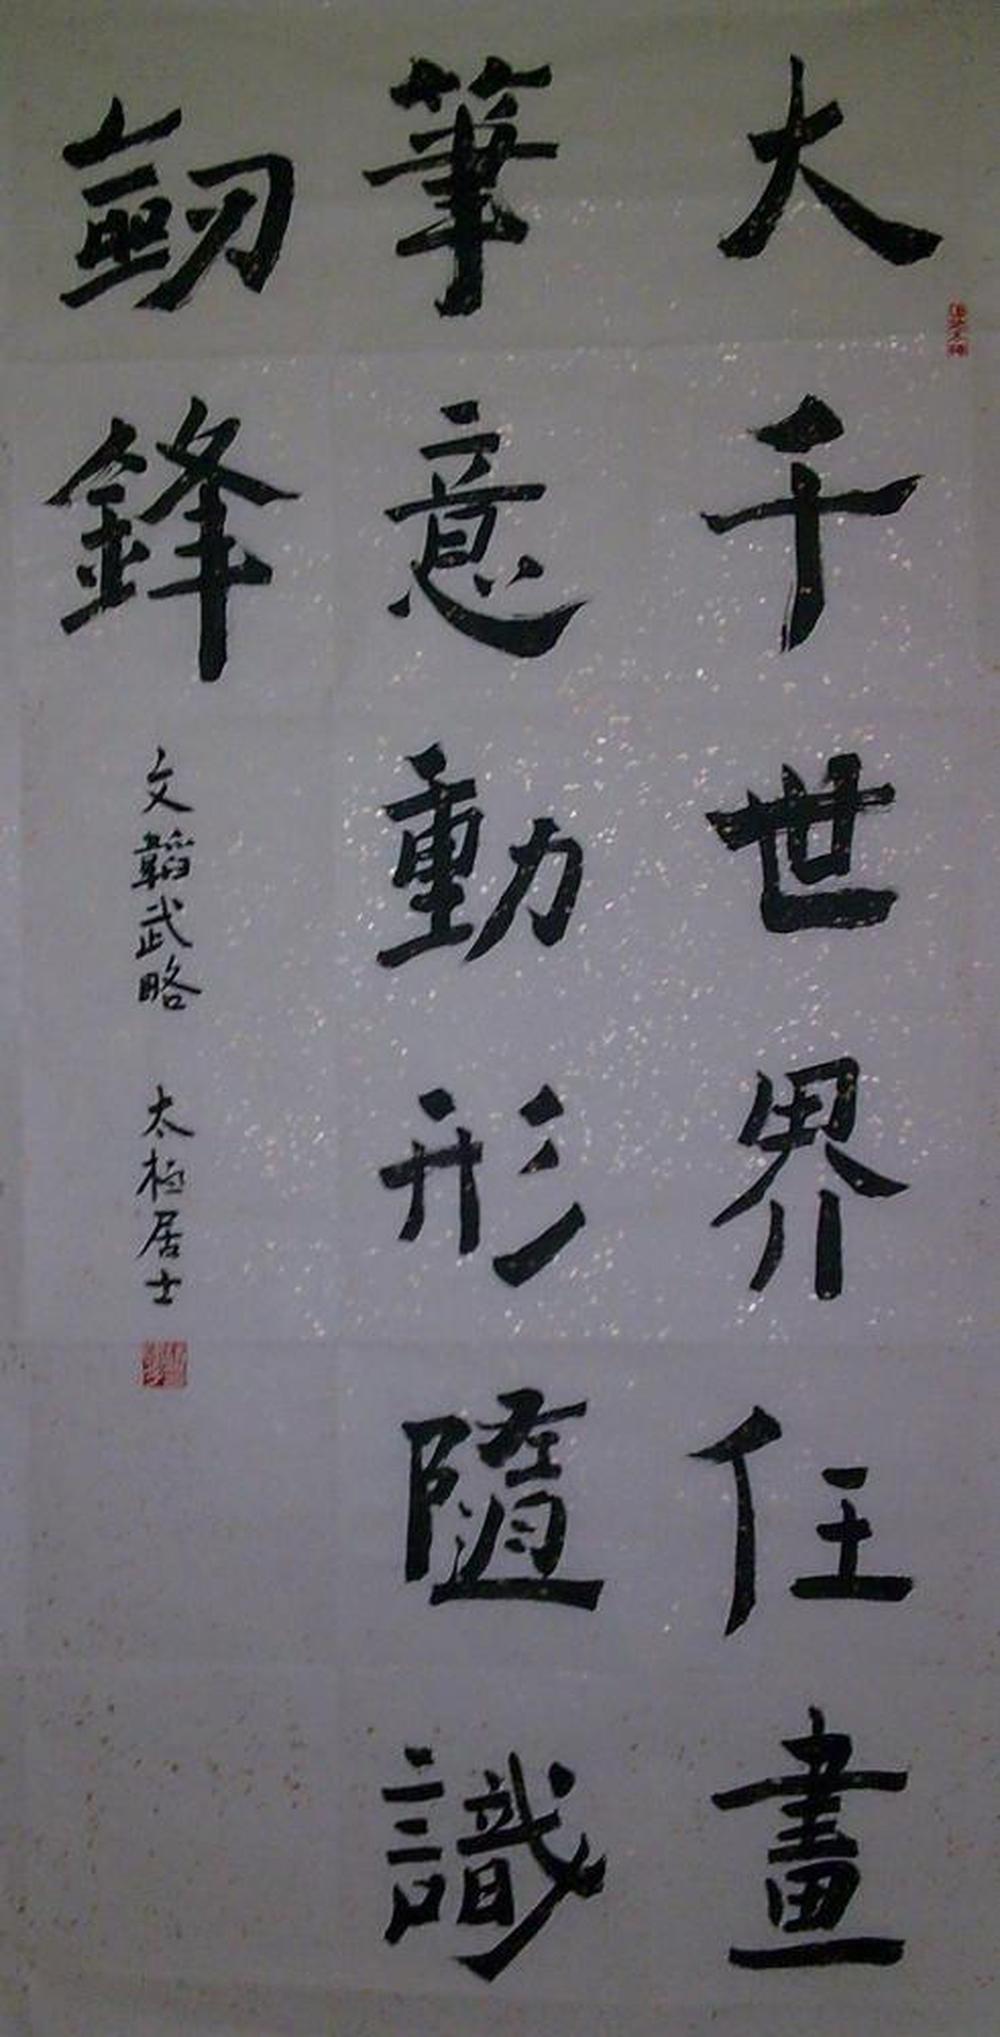 大千世界任畫
筆意動形隨識
劒鋒
文韜武略 太極居士